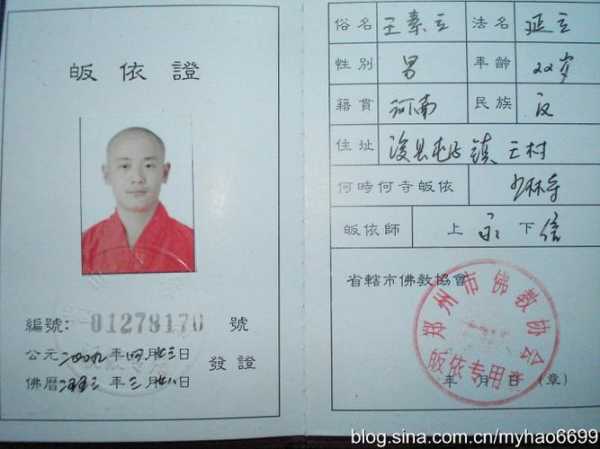 皈依證
編號: 01278170 號
公元二〇〇九年四月廿三日
發證
佛曆 三年三月廿八日
俗名 王素立 法名 延立
性別 男 年齡 22岁
籍貫 河南 民族 汉
住址 浚县屯子镇王村
何時何寺皈依 少林寺
皈依師 上永下信
省轄市佛教協會
郑州市佛教协会
皈依专用章
年 月 日 (章)
blog.sina.com.cn/myhao6699